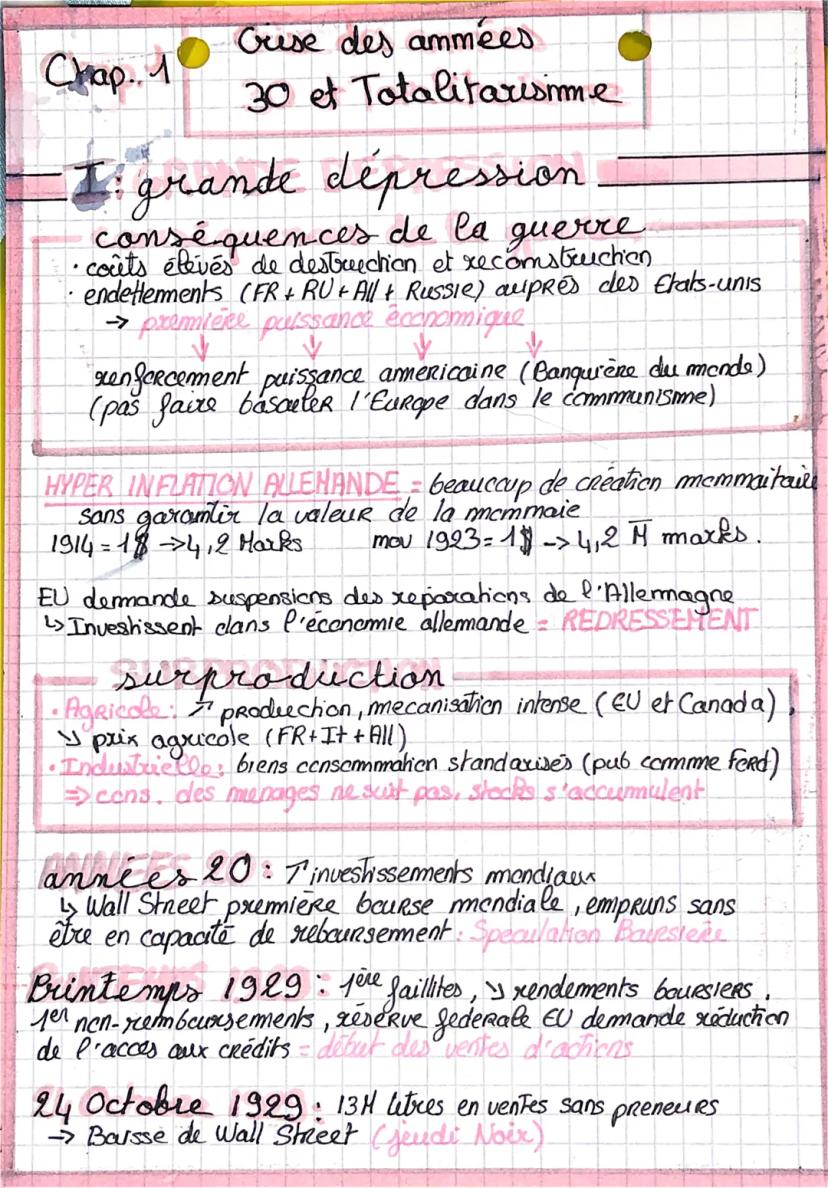 Chap. 1
Crise des années
30 et Totalitarisme
I: grande dépression
conséquences de la guerre
· coûts élevés de destruction et reconstruction
· endettements (FR + RU + All + Russie) auprès des Etats-unis
→ première puissance économique
renforcement puissance américaine (Banquière du monde)
(pas faire basculer l'Europe dans le communisme)
HYPER INFLATION ALLEMANDE = beaucoup de création monnaitaire
sans garantir la valeur de la monnaie
1914 = 1$ → 4,2 Marks nov 1923 = 1$ → 4,2 M marks.
EU demande suspensions des reparations de l'Allemagne
↳ Investissent dans l'économie allemande = REDRESSEMENT
surproduction
· Agricole : ↗ production, mecanisation intense (EU et Canada),
↘ prix agricole (FR + It + All)
· Industrielle : biens consommation standarisés (pub comme Ford)
⇒ cons. des menages ne suit pas, stocks s'accumulent
années 20 : ↑ investissements mondiaux
↳ Wall Street première bourse mondiale, empruns sans
être en capacité de reboursement : Speculation Boursière
Printemps 1929 : 1ère faillites, ↘ rendements boursiers,
1er non-remboursements, réserve federale EU demande réduction
de l'acces aux crédits = début des ventes d'actions
24 Octobre 1929 : 13M titres en ventes sans preneurs
→ Baisse de Wall Street (jeudi Noir)